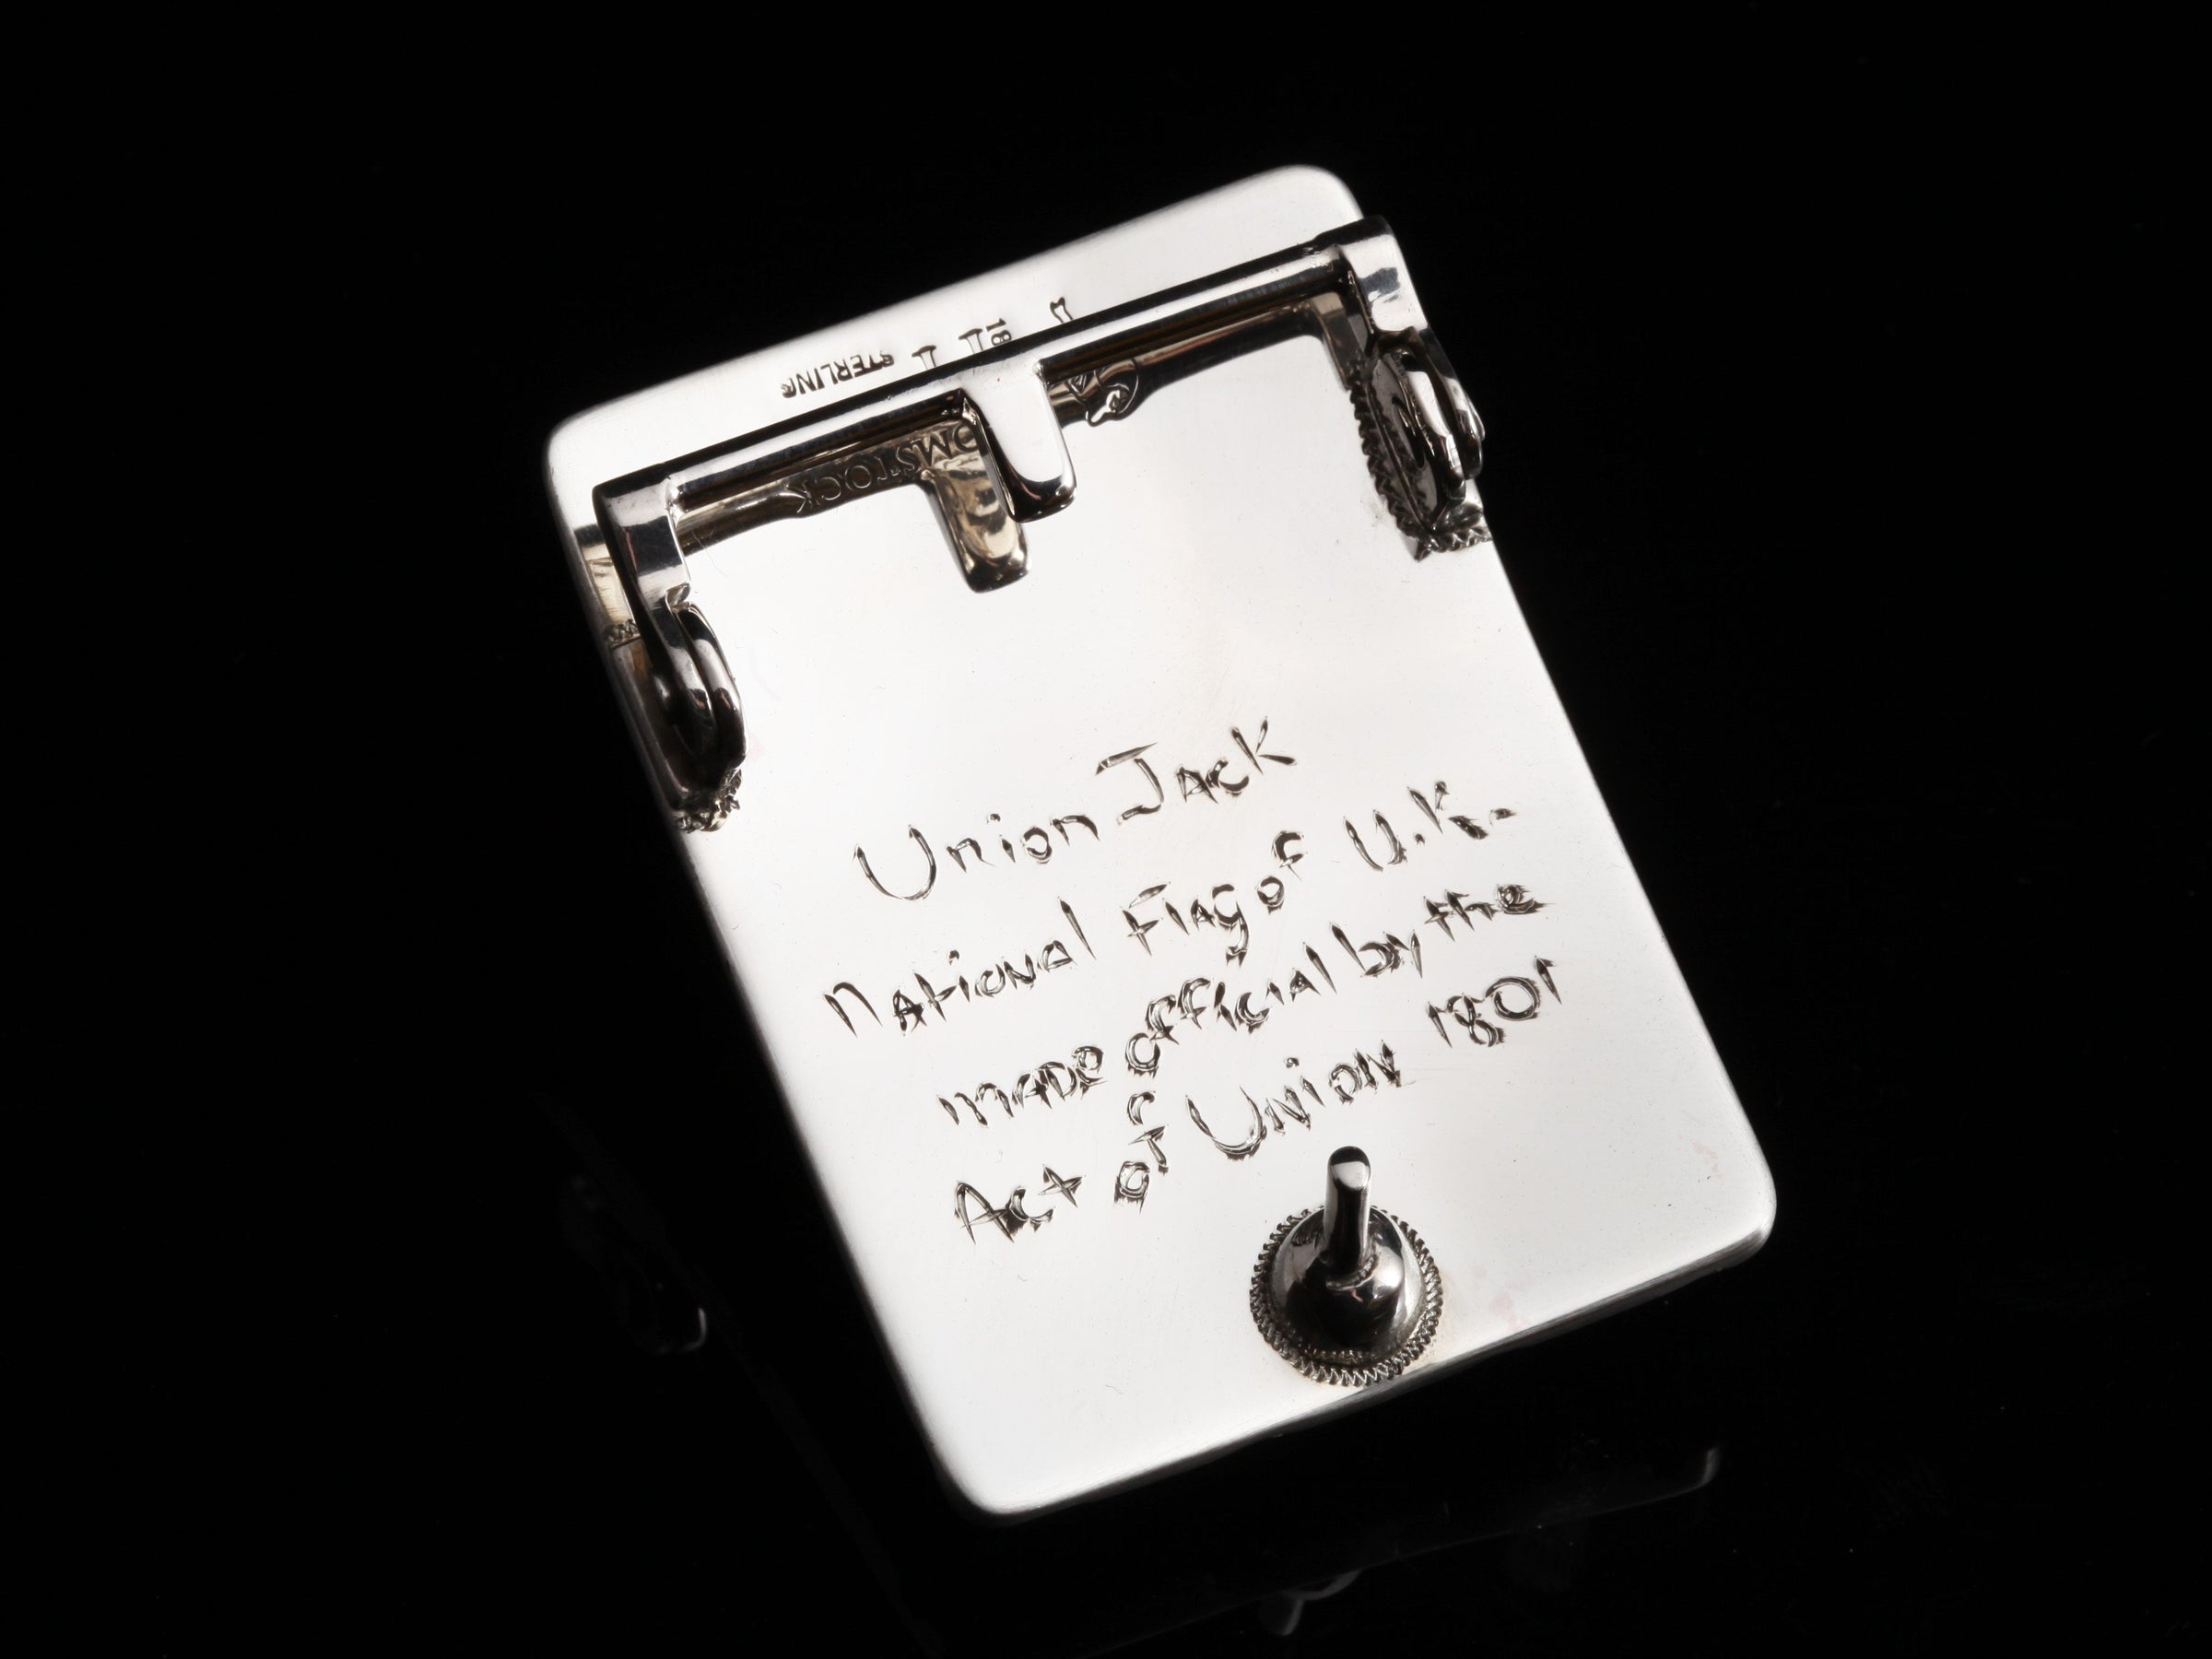 STERLING
18
OMSTOCK
Union Jack
National Flag of U.K.
made official by the
Act of Union 1801